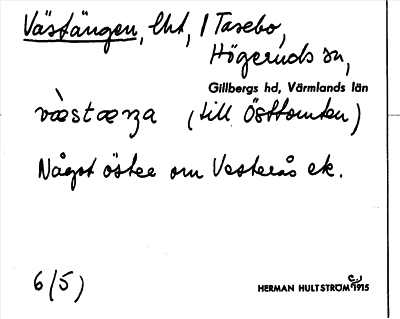 Västängen, lht, 1 Tasebo,
Högeruds sn,
Gillbergs hd, Värmlands län
væ̀stæŋa (till Östtomten)
Något öster om Vesterås ek.
6/5)
HERMAN HULTSTRÖM 1915